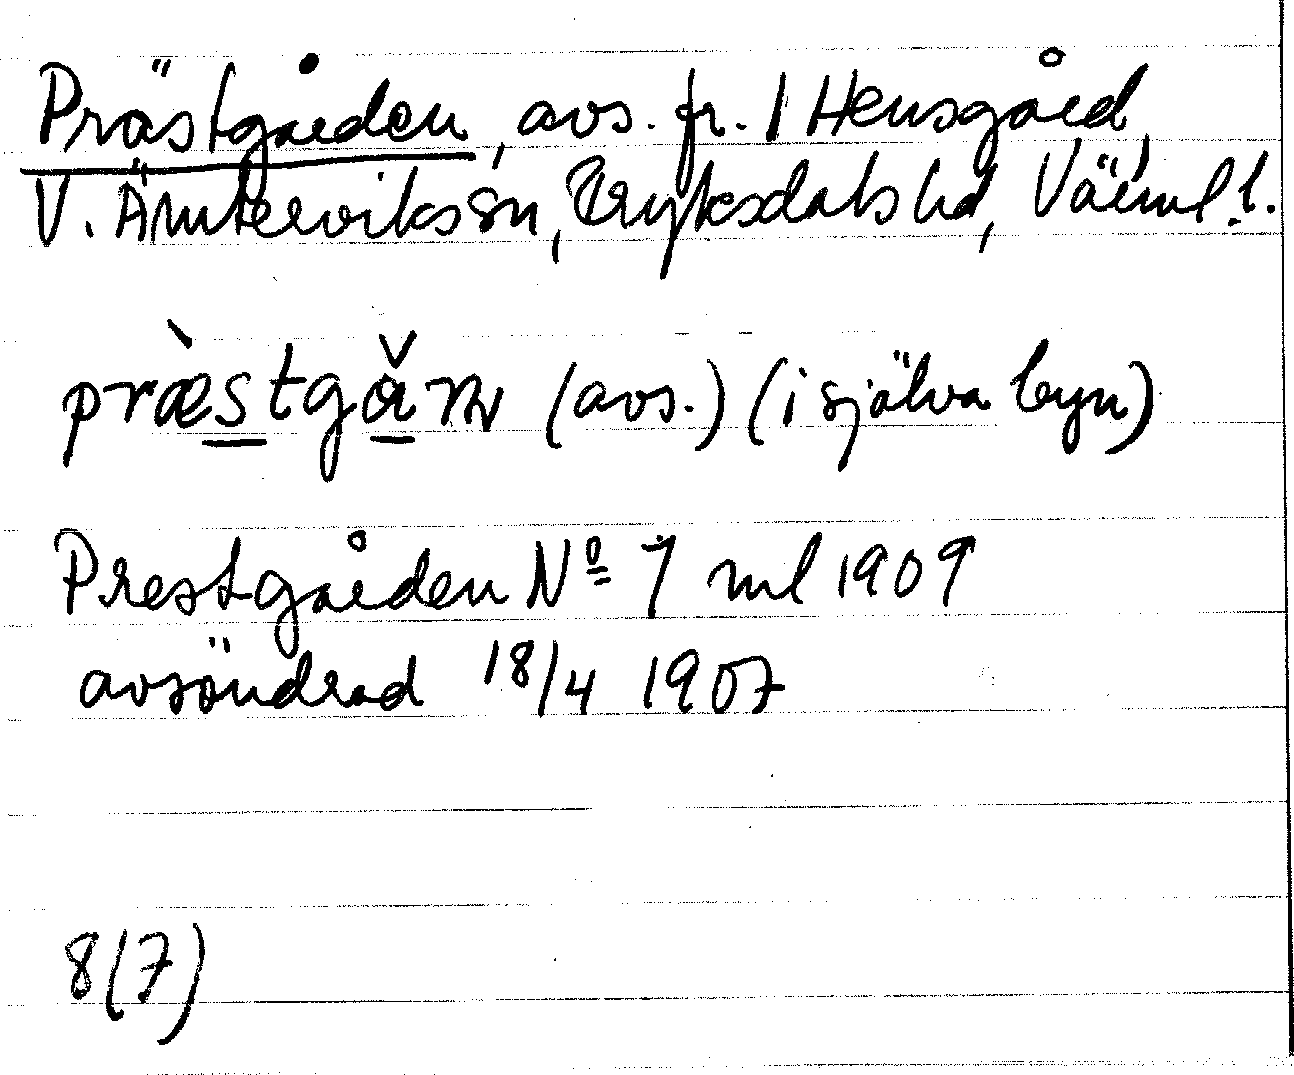 Prästgården, avs. fr. 1 Hensgård,
V. Ämterviks sn, Fryksdals hd, Värml. l.
præstgån (avs.) (i själva byn)
Prestgården Nº 7 ml 1909
avsöndrad 18/4 1907
8(7)